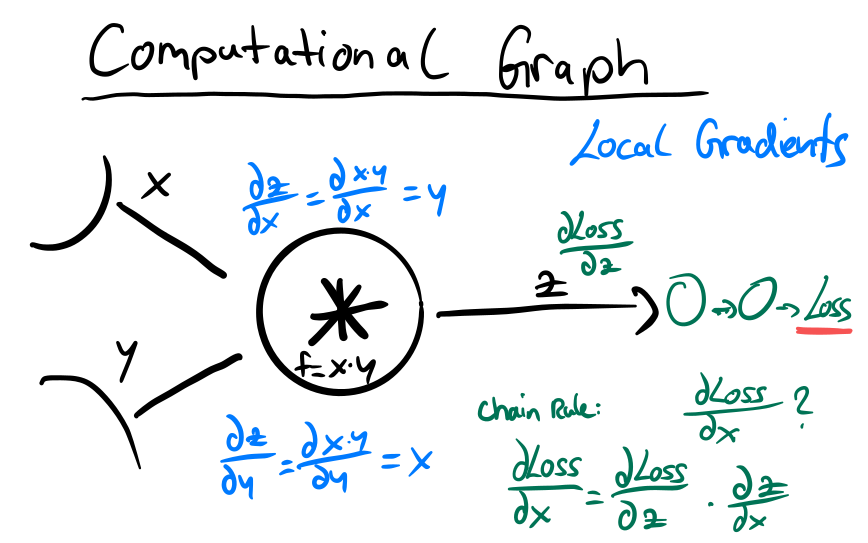 Computational Graph
Local Gradients
x
∂z/∂x = ∂x·y/∂x = y
∂Loss/∂z
z
*
f=x·y
O→O→Loss
y
∂z/∂y = ∂x·y/∂y = x
Chain Rule:
∂Loss/∂x ?
∂Loss/∂x = ∂Loss/∂z · ∂z/∂x